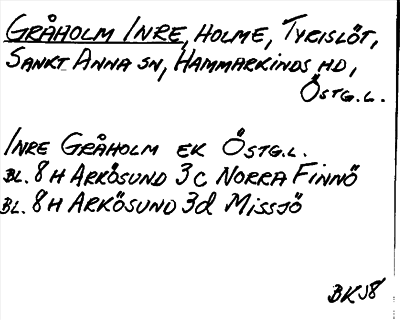 GRÅHOLM INRE, HOLME, TYRISLÖT,
SANKT ANNA SN, HAMMARKINDS HD,
ÖSTG.L.
INRE GRÅHOLM EK ÖSTG.L.
BL. 8 H ARKÖSUND 3 C NORRA FINNÖ
BL. 8 H ARKÖSUND 3d MISSJÖ
BKJ8